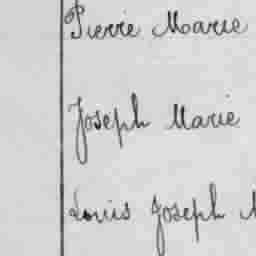 Pierre Marie
Joseph Marie
Louis Joseph